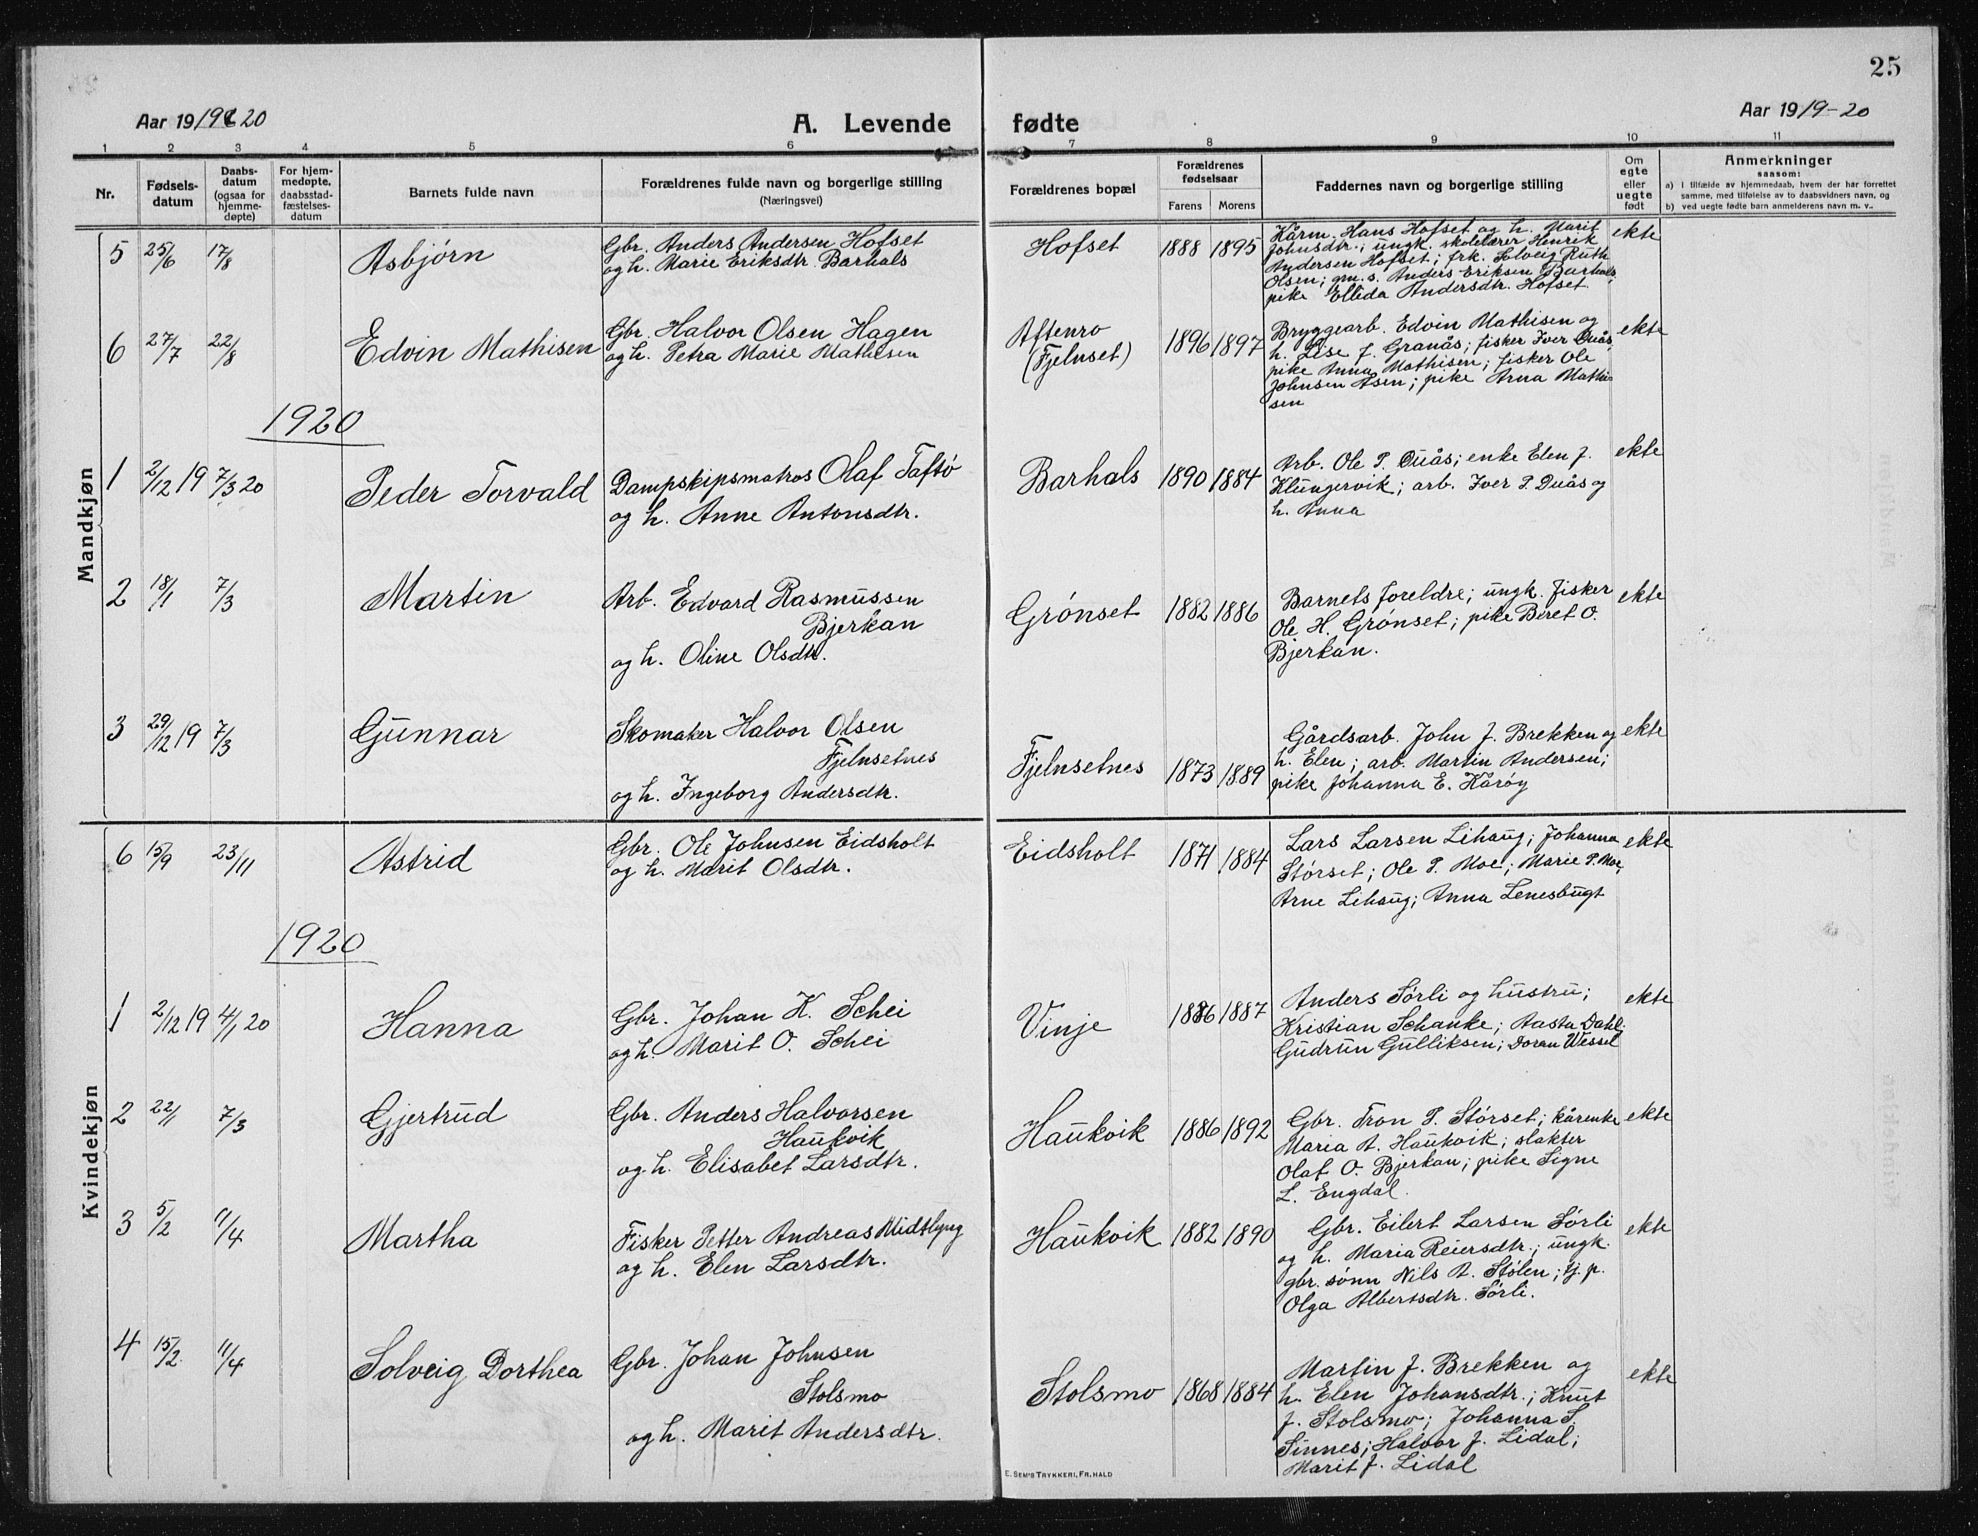 25
Aar 1919 & 20
A. Levende fødte
Aar 1919-20
1 2 3 4 5 6 7 8 9 10 11
Nr.
Fødsels-
datum
Daabs-
datum
(ogsaa for
hjemme-
døpte)
For hjem-
medøpte,
daabsstad-
fæstelses-
datum
Barnets fulde navn
Forældrenes fulde navn og borgerlige stilling
(Næringsvei)
Forældrenes bopæl
Forældrenes
fødselsaar
Farens Morens
Faddernes navn og borgerlige stilling
Om
egte
eller
uegte
født
Anmerkninger
saasom:
a) i tilfælde av hjemmedaab, hvem der har forrettet
samme, med tilføielse av to daabsvidners navn, og
b) ved uegte fødte barn anmelderens navn m. v..
Mandkjøn
5 25/6 17/8 Asbjørn
Gbr. Anders Andersen Hofset
og h. Marie Eriksdtr. Barhals
Hofset 1888 1895
Kårm. Hans Hofset og h. Marit
Johnsdtr.; ungk. skolelærer Henrik
Andersen Hofset; frk. Solveig Ruth
Olsen; grm. s. Anders Eriksen Barhals,
pike Ellida Andersdtr. Hofset.
ekte
6 27/7 22/8 Edvin Mathisen
Gbr. Halvor Olsen Hagen
og h. Petra Marie Mathisen
Aftenro
(Fjelnset)
1896 1897
Bryggearb. Edvin Mathisen og
h. Lise f. Granås; fisker Iver Duås,
pike Anna Mathisen; fisker Ole
Johnsen Åsen; pike Arna Mathi-
sen
ekte
1920
1 2/12 19 7/3 20 Peder Torvald
Dampskipsmatros Olaf Taftø
og h. Anne Antonsdtr.
Barhals 1890 1884
Arb. Ole P. Duås; enke Elen J.
Klungervik; arb. Iver P. Duås og
h. Anna
ekte
2 18/1 7/3 Martin
Arb. Edvard Rasmussen
Bjerkan
og h. Oline Olsdtr.
Grønset 1882 1886
Barnets foreldre; ungk. fisker
Ole H. Grønset; pike Beret O.
Bjerkan.
ekte
3 29/12 19 7/3 Gunnar
Skomaker Halvor Olsen
Fjelnsetnes
og h. Ingeborg Andersdtr.
Fjelnsetnes 1873 1889
Gårdsarb. John J. Brekken og
h. Elen; arb. Martin Andersen;
pike Johanna E. Kårøy
ekte
Kvindekjøn
6 15/9 23/11 Astrid
Gbr. Ole Johnsen Eidsholt
og h. Marit Olsdtr.
Eidsholt 1871 1884
Lars Larsen Lihaug; Johanna
Størset; Ole P. Moe; Marie P. Moe,
Arne Lihaug; Anna Lenesbugt
ekte
1920
1 2/12 19 4/1 20 Hanna
Gbr. Johan K. Schei
og h. Marit O. Schei
Vinje 1886 1887
Anders Sørli og hustru;
Kristian Schanke; Aasta Dahl.
Gudrun Gulliksen; Doran Wessel
ekte
2 22/1 7/3 Gjertrud
Gbr. Anders Halvorsen
Haukvik
og h. Elisabet Larsdtr.
Haukvik 1886 1892
Gbr. Tron P. Størset; kårenke
Maria A. Haukvik; slakter
Olaf O. Bjerkan; pike Signe
L. Engdal.
ekte
3 5/2 11/4 Martha
Fisker Petter Andreas Midtlyng
og h. Elen Larsdtr.
Haukvik 1882 1890
Gbr. Eilert Larsen Sørli
og h. Maria Reiersdtr.; ungk.
gbr. sønn Nils A. Stølen; tj. p.
Olga Albertsdtr. Sørli.
ekte
4 15/2 11/4 Solveig Dorthea
Gbr. Johan Johnsen
Stolsmo
og h. Marit Andersdtr.
Stolsmo 1868 1884
Martin J. Brekken og
h. Elen Johansdtr.; Knut
J. Stolsmo; Johanna S.
Sinnes; Halvor J. Lidal;
Marit J. Lidal
ekte
E. Sem's Trykkeri, Fr.hald